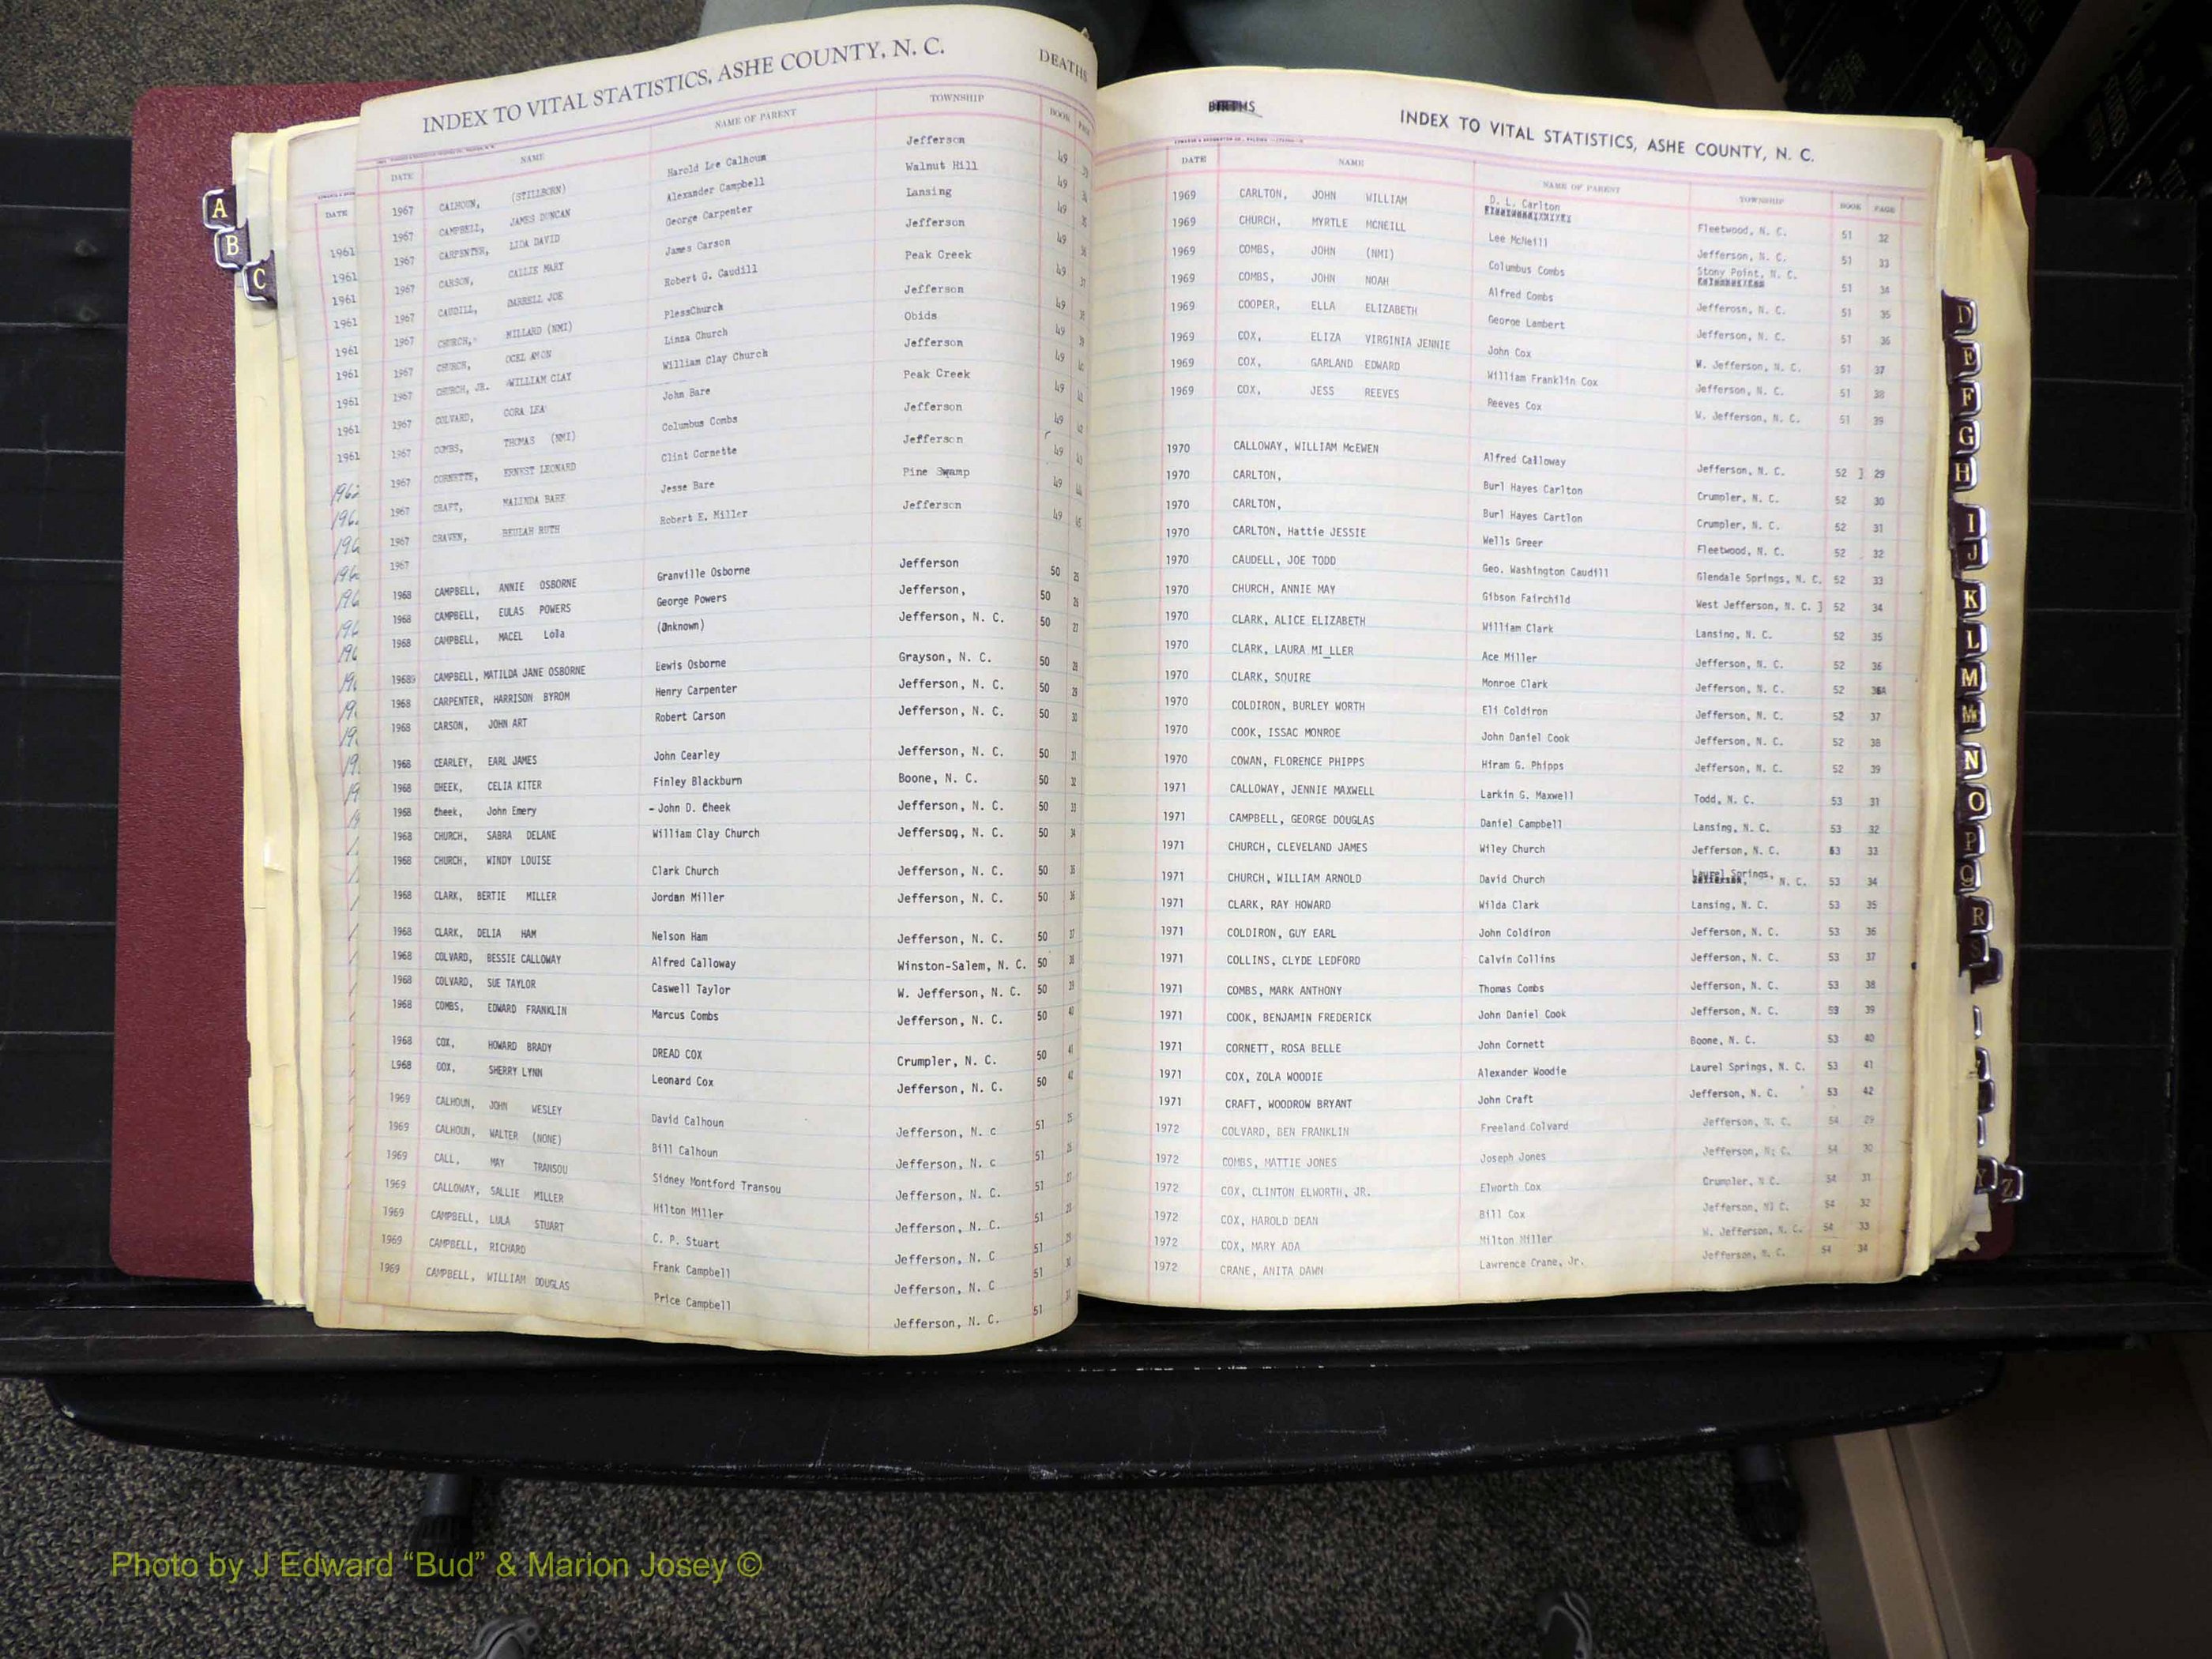 INDEX TO VITAL STATISTICS, ASHE COUNTY, N. C. DEATHS
DATE NAME NAME OF PARENT TOWNSHIP BOOK PAGE
1967 CALHOUN, (STILLBORN) Harold Lee Calhoun Jefferson 49
1967 CAMPBELL, JAMES DUNCAN Alexander Campbell Walnut Hill 49
1967 CARPENTER, LIDA DAVID George Carpenter Lansing 49
1967 CARSON, CALLIE MARY James Carson Jefferson 49
1967 CAUDILL, DARRELL JOE Robert G. Caudill Peak Creek 49
1967 CHURCH, MILLARD (NMI) PlessChurch Jefferson 49
1967 CHURCH, OCEL AMON Linza Church Obids 49
1967 CHURCH, JR. WILLIAM CLAY William Clay Church Jefferson 49
1967 COLVARD, CORA LEA John Bare Peak Creek 49
1967 COMBS, THOMAS (NMI) Columbus Combs Jefferson 49
1967 CORNETTE, ERNEST LEONARD Clint Cornette Jefferson 49
1967 CRAFT, MALINDA BARE Jesse Bare Pine Swamp 49
1967 CRAVEN, BEULAH RUTH Robert E. Miller Jefferson 49
1967
1968 CAMPBELL, ANNIE OSBORNE Granville Osborne Jefferson 50 25
1968 CAMPBELL, EULAS POWERS George Powers Jefferson, 50 26
1968 CAMPBELL, MACEL Lola (Unknown) Jefferson, N. C. 50 27
19689 CAMPBELL, MATILDA JANE OSBORNE Lewis Osborne Grayson, N. C. 50 28
1968 CARPENTER, HARRISON BYROM Henry Carpenter Jefferson, N. C. 50 29
1968 CARSON, JOHN ART Robert Carson Jefferson, N. C. 50 30
1968 CEARLEY, EARL JAMES John Cearley Jefferson, N. C. 50 31
1968 CHEEK, CELIA KITER Finley Blackburn Boone, N. C. 50 32
1968 Cheek, John Emery - John D. Cheek Jefferson, N. C. 50 33
1968 CHURCH, SABRA DELANE William Clay Church Jefferson, N. C. 50 34
1968 CHURCH, WINDY LOUISE Clark Church Jefferson, N. C. 50 35
1968 CLARK, BERTIE MILLER Jordan Miller Jefferson, N. C. 50 36
1968 CLARK, DELIA HAM Nelson Ham Jefferson, N. C. 50 37
1968 COLVARD, BESSIE CALLOWAY Alfred Calloway Winston-Salem, N. C. 50 38
1968 COLVARD, SUE TAYLOR Caswell Taylor W. Jefferson, N. C. 50 39
1968 COMBS, EDWARD FRANKLIN Marcus Combs Jefferson, N. C. 50 40
1968 COX, HOWARD BRADY DREAD COX Crumpler, N. C. 50 41
L968 COX, SHERRY LYNN Leonard Cox Jefferson, N. C. 50 42
1969 CALHOUN, JOHN WESLEY David Calhoun Jefferson, N. c 51 25
1969 CALHOUN, WALTER (NONE) Bill Calhoun Jefferson, N. c 51 26
1969 CALL, MAY TRANSOU Sidney Montford Transou Jefferson, N. C. 51 27
1969 CALLOWAY, SALLIE MILLER Hilton Miller Jefferson, N. C. 51 28
1969 CAMPBELL, LULA STUART C. P. Stuart Jefferson, N. C 51 29
1969 CAMPBELL, RICHARD Frank Campbell Jefferson, N. C 51 30
1969 CAMPBELL, WILLIAM DOUGLAS Price Campbell Jefferson, N. C. 51 31
DATE
1961
1961
1961
1961
1961
1961
1961
1961
A
B
C
BIRTHS INDEX TO VITAL STATISTICS, ASHE COUNTY, N. C.
DATE NAME NAME OF PARENT TOWNSHIP BOOK PAGE
1969 CARLTON, JOHN WILLIAM D. L. Carlton Fleetwood, N. C. 51 32
1969 CHURCH, MYRTLE MCNEILL Lee McNeill Jefferson, N. C. 51 33
1969 COMBS, JOHN (NMI) Columbus Combs Stony Point, N. C. 51 34
1969 COMBS, JOHN NOAH Alfred Combs Jefferosn, N. C. 51 35
1969 COOPER, ELLA ELIZABETH George Lambert Jefferson, N. C. 51 36
1969 COX, ELIZA VIRGINIA JENNIE John Cox W. Jefferson, N. C. 51 37
1969 COX, GARLAND EDWARD William Franklin Cox Jefferson, N. C. 51 38
1969 COX, JESS REEVES Reeves Cox W. Jefferson, N. C. 51 39
1970 CALLOWAY, WILLIAM McEWEN Alfred Calloway Jefferson, N. C. 52 ] 29
1970 CARLTON, Burl Hayes Carlton Crumpler, N. C. 52 30
1970 CARLTON, Burl Hayes Cartlon Crumpler, N. C. 52 31
1970 CARLTON, Hattie JESSIE Wells Greer Fleetwood, N. C. 52 32
1970 CAUDELL, JOE TODD Geo. Washington Caudill Glendale Springs, N. C. 52 33
1970 CHURCH, ANNIE MAY Gibson Fairchild West Jefferson, N. C. ] 52 34
1970 CLARK, ALICE ELIZABETH William Clark Lansing, N. C. 52 35
1970 CLARK, LAURA MI_LLER Ace Miller Jefferson, N. C. 52 36
1970 CLARK, SQUIRE Monroe Clark Jefferson, N. C. 52 36A
1970 COLDIRON, BURLEY WORTH Eli Coldiron Jefferson, N. C. 52 37
1970 COOK, ISSAC MONROE John Daniel Cook Jefferson, N. C. 52 38
1970 COWAN, FLORENCE PHIPPS Hiram G. Phipps Jefferson, N. C. 52 39
1971 CALLOWAY, JENNIE MAXWELL Larkin G. Maxwell Todd, N. C. 53 31
1971 CAMPBELL, GEORGE DOUGLAS Daniel Campbell Lansing, N. C. 53 32
1971 CHURCH, CLEVELAND JAMES Wiley Church Jefferson, N. C. 53 33
1971 CHURCH, WILLIAM ARNOLD David Church Laurel Springs, N. C. 53 34
1971 CLARK, RAY HOWARD Wilda Clark Lansing, N. C. 53 35
1971 COLDIRON, GUY EARL John Coldiron Jefferson, N. C. 53 36
1971 COLLINS, CLYDE LEDFORD Calvin Collins Jefferson, N. C. 53 37
1971 COMBS, MARK ANTHONY Thomas Combs Jefferson, N. C. 53 38
1971 COOK, BENJAMIN FREDERICK John Daniel Cook Jefferson, N. C. 53 39
1971 CORNETT, ROSA BELLE John Cornett Boone, N. C. 53 40
1971 COX, ZOLA WOODIE Alexander Woodie Laurel Springs, N. C. 53 41
1971 CRAFT, WOODROW BRYANT John Craft Jefferson, N. C. 53 42
1972 COLVARD, BEN FRANKLIN Freeland Colvard Jefferson, N. C. 54 29
1972 COMBS, MATTIE JONES Joseph Jones Jefferson, N. C. 54 30
1972 COX, CLINTON ELWORTH, JR. Elworth Cox Crumpler, N C. 54 31
1972 COX, HAROLD DEAN Bill Cox Jefferson, N. C. 54 32
1972 COX, MARY ADA Milton Miller W. Jefferson, N. C. 54 33
1972 CRANE, ANITA DAWN Lawrence Crane, Jr. Jefferson, N. C. 54 34
D
E
F
G
H
I
J
K
L
M
Mc
N
O
P
Q
R
S
Y
Z
Photo by J Edward “Bud” & Marion Josey ©